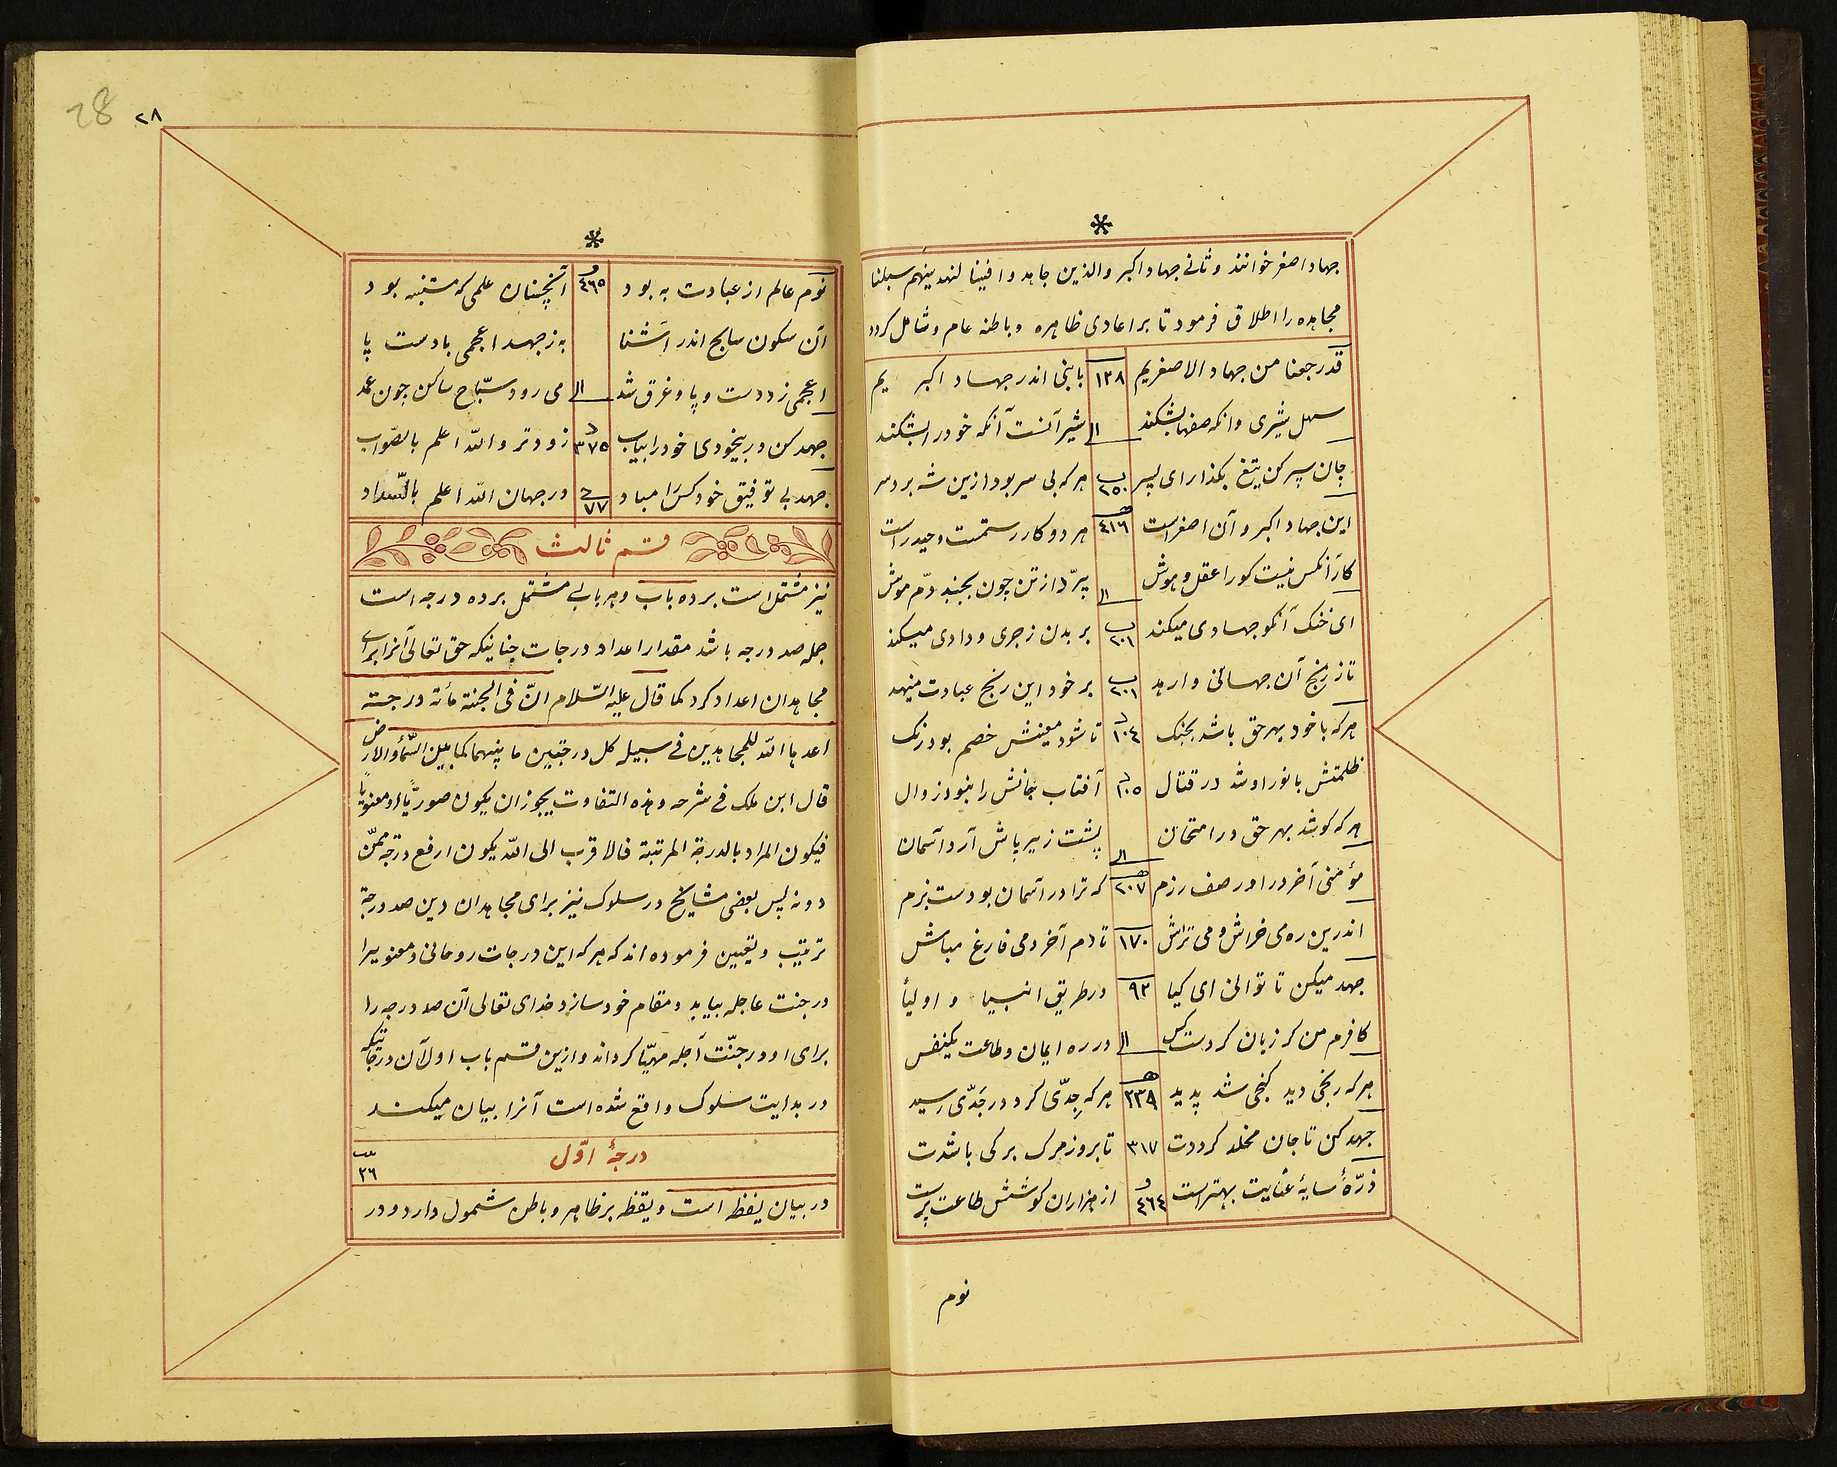 جهاد اصغر خوانند و ثانی جهاد اکبر والذین جاهدوا فینا لنهدینهم سبلنا
مجاهده را اطلاق فرمود تا بر اعادی ظاهره و باطنه عام و شامل کردد
قد رجعنا من جهاد الاصغریم ١٣٨ با بنی اندر جهاد اکبر یم
سهل شیری دانکه صفها بشکند ١١ شیر آنست آنکه خود را بشکند
جان سپر کن تیغ بکذار ای پسر ب ٢٥٠ هر که بی سر بود ازین شه برد سر
این جهاد اکبر و آن اصغر است ه ٤١٦ هر دو کار رستمست و حیدر است
کار آنکس نیست کو را عقل و هوش ١١ پرّد از تن چون بجنبد دم موش
ای خنک آنکو جهادی میکند ب ٢٠١ بر بدن زجری و دادی میکند
تا ز رنج آن جهانی وارهد ب ٢٠١ بر خود این رنج عبادت مینهد
هر که با خود بهر حق باشد بجنک د ١٠٤ تا شود معینش خصم بو و رنک
ظلمتش با نور او شد در قتال د ١٠٥ آفتاب جانش را نبود زوال
هر که کوشد بهر حق در امتحان ١١ پشت زیر پاش آرد آسمان
مؤمنی آخر درا در صف رزم ه ٢٠٧ که ترا در آسمان بودست بزم
اندرین ره می خراش و می تراش ١٧٠ تا دم آخر دمی فارغ مباش
جهد میکن تا توانی ای کیا ٩٣ در طریق انبیا و اولیأ
کافرم من کر زیان کردست کس ١١ در ره ایمان و طاعت یکنفس
هر که رنجی دید کنجی شد پدید ه ٢٣٩ هر که جِدّی کرد در جَدّی رسید
جهد کن تا جان مخلد کرددت ٣١٧ تا بروز مرک برکی باشدت
ذرّهٔ سایهٔ عنایت بهتر است و ٤٦٤ از هزاران کوشش طاعت پرست
نوم
28
٢٨
نوم عالم از عبادت به بود و ٤٦٥ آنچنان علمی که مستنبه بود
آن سکون سابح اندر آشنا به ز جهد اعجمی با دست پا
اعجمی زد دست و پا و غرق شد ١١ می رود سبّاح ساکن چون عمد
جهد کن در بیخودی خود را بیاب د ٣٧٥ زودتر والله اعلم بالصّواب
جهد بی توفیق خود کس را مباد ح ٧٧ در جهان الله اعلم بالسّداد
قسم ثالث
نیز مشتمل است بر ده باب و هر بابی مشتمل بر ده درجه است
جمله صد درجه باشد مقدار اعداد درجات چنانیکه حق تعالی آنرا برای
مجاهدان اعداد کرد کما قال علیه السّلام انّ فی الجنة مأته درجته
اعدها الله للمجاهدین فی سبیله کل درجتین ما بینهما کما بین السّمأ والارض
قال ابن ملک فی شرحه وهذه التفاوت یجوز ان یکون صوریًا او معنویًا
فیکون المراد بالدرجة المرتبة فالاقرب الی الله یکون ارفع درجة ممّن
دونه پس بعضی مشایخ در سلوک نیز برای مجاهدان دین صد درجة
ترتیب و تعیین فرموده اند که هر که این درجات روحانی و معنویرا
در جنت عاجله بیابد و مقام خود سازد خدای تعالی آن صد درجه را
برای او در جنّت آجله مهیّا کرداند و ازین قسم باب اول آن درجاتیکه
در بدایت سلوک واقع شده است آنرا بیان میکند
درجهٔ اوّل ٢٦
در بیان یقظ است و یقظه بر ظاهر و باطن شمول دارد و در